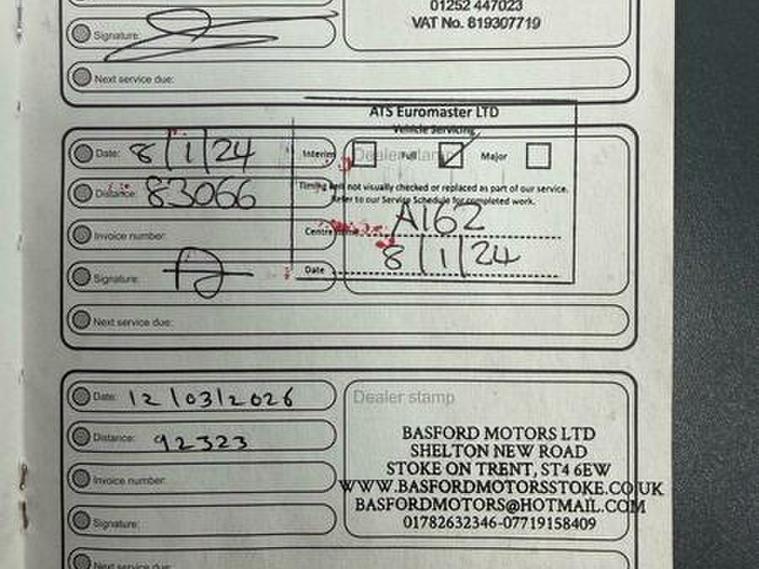 01252 447023
VAT No. 819307719
Signature:
Next service due:
ATS Euromaster LTD
Vehicle Servicing
Date: 8/1/24
Interim Full Major
Dealer stamp
Distance: 83066
Timing belt not visually checked or replaced as part of our service.
Refer to our Service Schedule for completed work.
Invoice number:
Centre A162
Signature:
Date 8/1/24
Next service due:
Date: 12/03/2026
Dealer stamp
Distance: 92323
BASFORD MOTORS LTD
SHELTON NEW ROAD
STOKE ON TRENT, ST4 6EW
Invoice number:
WWW.BASFORDMOTORSSTOKE.CO.UK
BASFORDMOTORS@HOTMAIL.COM
Signature:
01782632346-07719158409
Next service due: